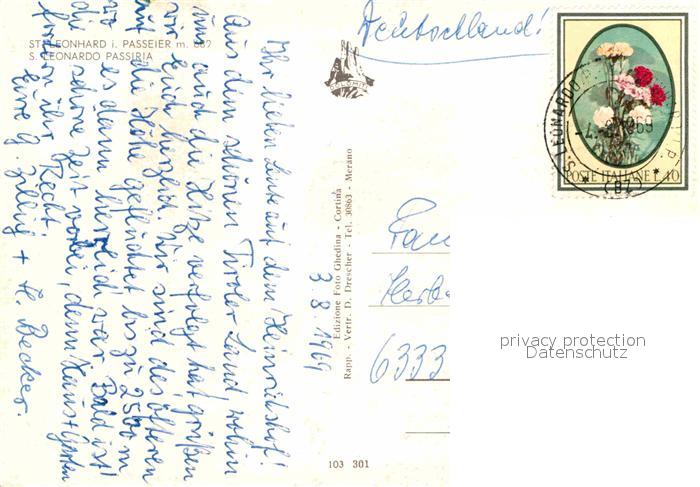 ST. LEONHARD i. PASSEIER m. 689
S. LEONARDO PASSIRIA
Ihr lieben Leute auf dem Heinrichshof!
Aus dem schönen Tiroler Land, wohin
uns auch die Hitze verfolgt hat grüßen
wir Euch herzlich. Wir sind des öfteren
auf die Höhe geflüchtet bis zu 2500 m
wo es dann herrlich war. Bald ist
die schöne Zeit vorbei, denn Haus + Garten
fordern ihr Recht.
Eure G. + H. Becker.
3.8.1969
Edizione Foto Ghedina - Cortina
Rapp. - Vertr. D. Drescher - Tel. 30863 - Merano
103 301
Deutschland!
POSTE ITALIANE L. 40
S. LEONARDO P.
1969
(BZ)
Fam
Herb
6333
privacy protection
Datenschutz